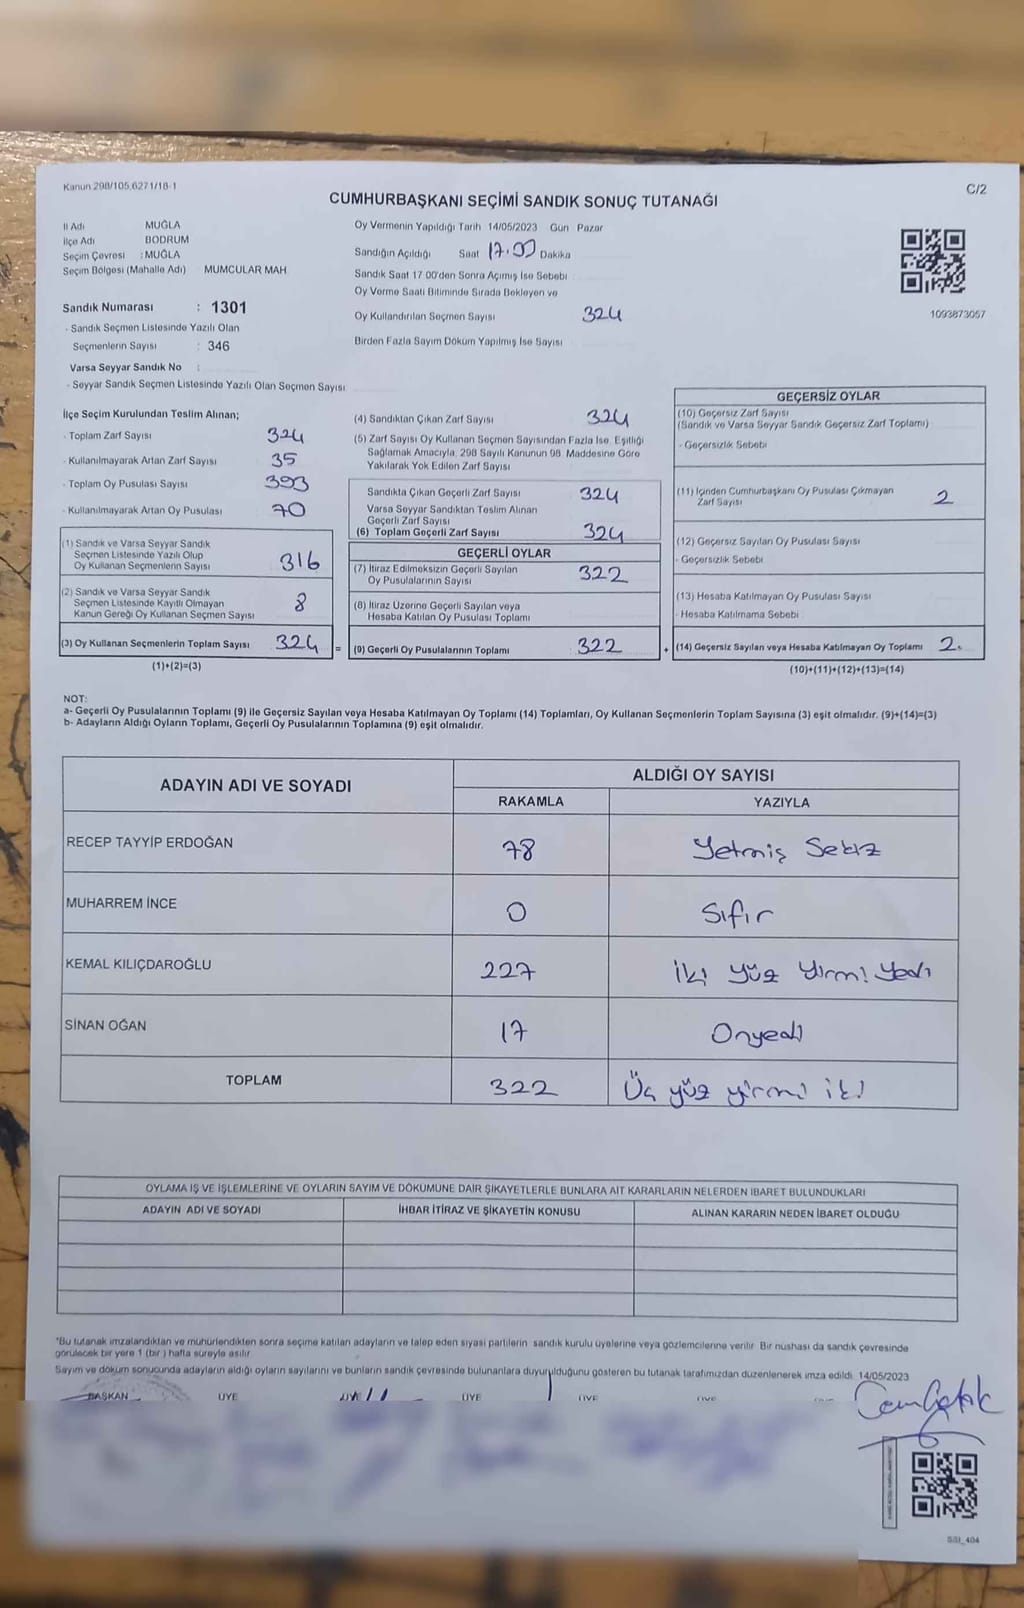 Kanun 298/105,6271/18-1
C/2
CUMHURBAŞKANI SEÇİMİ SANDIK SONUÇ TUTANAĞI
İl Adı MUĞLA
İlçe Adı BODRUM
Seçim Çevresi : MUĞLA
Seçim Bölgesi (Mahalle Adı) MUMCULAR MAH
Sandık Numarası : 1301
- Sandık Seçmen Listesinde Yazılı Olan
Seçmenlerin Sayısı : 346
Varsa Seyyar Sandık No :
- Seyyar Sandık Seçmen Listesinde Yazılı Olan Seçmen Sayısı
Oy Vermenin Yapıldığı Tarih 14/05/2023 Gün Pazar
Sandığın Açıldığı Saat 17.00 Dakika
Sandık Saat 17 00'den Sonra Açımış İse Sebebi
Oy Verme Saati Bitiminde Sırada Bekleyen ve
Oy Kullandırılan Seçmen Sayısı 324
Birden Fazla Sayım Döküm Yapılmış İse Sayısı
1093873057
İlçe Seçim Kurulundan Teslim Alınan;
- Toplam Zarf Sayısı 324
- Kullanılmayarak Artan Zarf Sayısı 35
- Toplam Oy Pusulası Sayısı 393
- Kullanılmayarak Artan Oy Pusulası 70
(1) Sandık ve Varsa Seyyar Sandık
Seçmen Listesinde Yazılı Olup
Oy Kullanan Seçmenlerin Sayısı 316
(2) Sandık ve Varsa Seyyar Sandık
Seçmen Listesinde Kayıtlı Olmayan
Kanun Gereği Oy Kullanan Seçmen Sayısı 8
(3) Oy Kullanan Seçmenlerin Toplam Sayısı 324 =
(1)+(2)=(3)
(4) Sandıktan Çıkan Zarf Sayısı 324
(5) Zarf Sayısı Oy Kullanan Seçmen Sayısından Fazla İse, Eşitliği
Sağlamak Amacıyla, 298 Sayılı Kanunun 98. Maddesine Göre
Yakılarak Yok Edilen Zarf Sayısı
Sandıkta Çıkan Geçerli Zarf Sayısı 324
Varsa Seyyar Sandıktan Teslim Alınan
Geçerli Zarf Sayısı
(6) Toplam Geçerli Zarf Sayısı 324
GEÇERLİ OYLAR
(7) İtiraz Edilmeksizin Geçerli Sayılan
Oy Pusulalarının Sayısı 322
(8) İtiraz Üzerine Geçerli Sayılan veya
Hesaba Katılan Oy Pusulası Toplamı
(9) Geçerli Oy Pusulalarının Toplamı 322 +
GEÇERSİZ OYLAR
(10) Geçersiz Zarf Sayısı
(Sandık ve Varsa Seyyar Sandık Geçersiz Zarf Toplamı)
- Geçersizlik Sebebi
(11) İçinden Cumhurbaşkanı Oy Pusulası Çıkmayan
Zarf Sayısı 2
(12) Geçersiz Sayılan Oy Pusulası Sayısı
- Geçersizlik Sebebi
(13) Hesaba Katılmayan Oy Pusulası Sayısı
- Hesaba Katılmama Sebebi
(14) Geçersiz Sayılan veya Hesaba Katılmayan Oy Toplamı 2.
(10)+(11)+(12)+(13)=(14)
NOT:
a- Geçerli Oy Pusulalarının Toplamı (9) ile Geçersiz Sayılan veya Hesaba Katılmayan Oy Toplamı (14) Toplamları, Oy Kullanan Seçmenlerin Toplam Sayısına (3) eşit olmalıdır. (9)+(14)=(3)
b- Adayların Aldığı Oyların Toplamı, Geçerli Oy Pusulalarının Toplamına (9) eşit olmalıdır.
ADAYIN ADI VE SOYADI ALDIĞI OY SAYISI
RAKAMLA YAZIYLA
RECEP TAYYİP ERDOĞAN 78 Yetmiş Sekiz
MUHARREM İNCE 0 Sıfır
KEMAL KILIÇDAROĞLU 227 İki yüz yirmi yedi
SİNAN OĞAN 17 Onyedi
TOPLAM 322 Üç yüz yirmi iki
OYLAMA İŞ VE İŞLEMLERİNE VE OYLARIN SAYIM VE DÖKÜMÜNE DAİR ŞİKAYETLERLE BUNLARA AİT KARARLARIN NELERDEN İBARET BULUNDUKLARI
ADAYIN ADI VE SOYADI İHBAR İTİRAZ VE ŞİKAYETİN KONUSU ALINAN KARARIN NEDEN İBARET OLDUĞU
*Bu tutanak imzalandıktan ve mühürlendikten sonra seçime katılan adayların ve talep eden siyasi partilerin sandık kurulu üyelerine veya gözlemcilerine verilir. Bir nüshası da sandık çevresinde
görülecek bir yere 1 (bir ) hafta süreyle asılır
Sayım ve döküm sonucunda adayların aldığı oyların sayılarını ve bunların sandık çevresinde bulunanlara duyurulduğunu gösteren bu tutanak tarafımızdan düzenlenerek imza edildi. 14/05/2023
BAŞKAN ÜYE ÜYE ÜYE ÜYE ÜYE